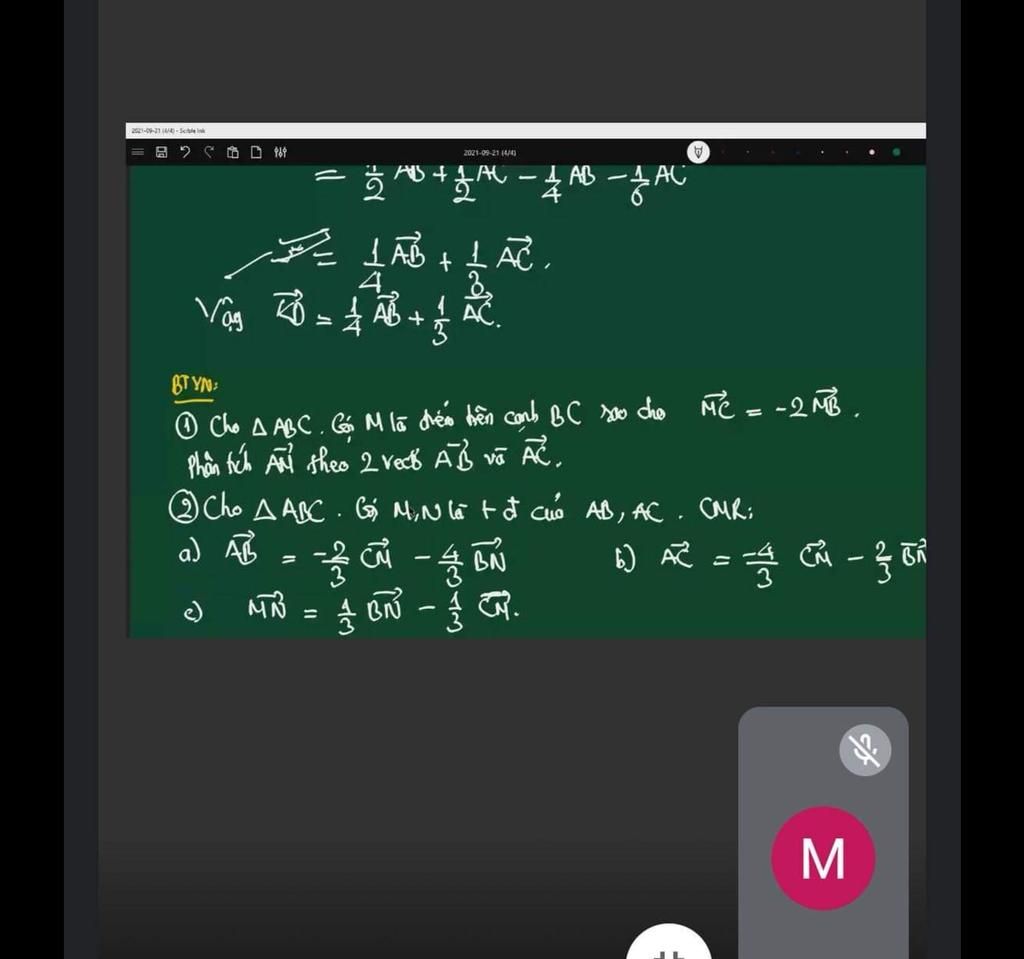 2021-09-21 (4/4) - Scrble Ink
2021-09-21 (4/4)
= 1/2 AB + 1/2 AC - 1/4 AB - 1/6 AC
= 1/4 AB + 1/3 AC.
Vậy KD = 1/4 AB + 1/3 AC.
BTVN:
① Cho △ABC. Gọi M là điểm trên cạnh BC sao cho MC = -2MB.
Phân tích AM theo 2 vectơ AB và AC.
② Cho △ABC. Gọi M,N là t đ của AB, AC. CMR:
a) AB = -2/3 CM - 4/3 BN b) AC = -4/3 CM - 2/3 BN
c) MN = 1/3 BN - 1/3 CM.
M